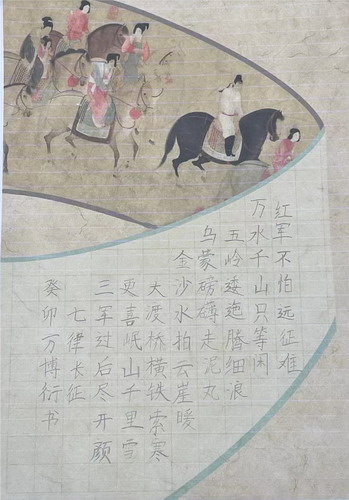 红军不怕远征难
万水千山只等闲
五岭逶迤腾细浪
乌蒙磅礴走泥丸
金沙水拍云崖暖
大渡桥横铁索寒
更喜岷山千里雪
三军过后尽开颜
七律长征
癸卯万博衍书